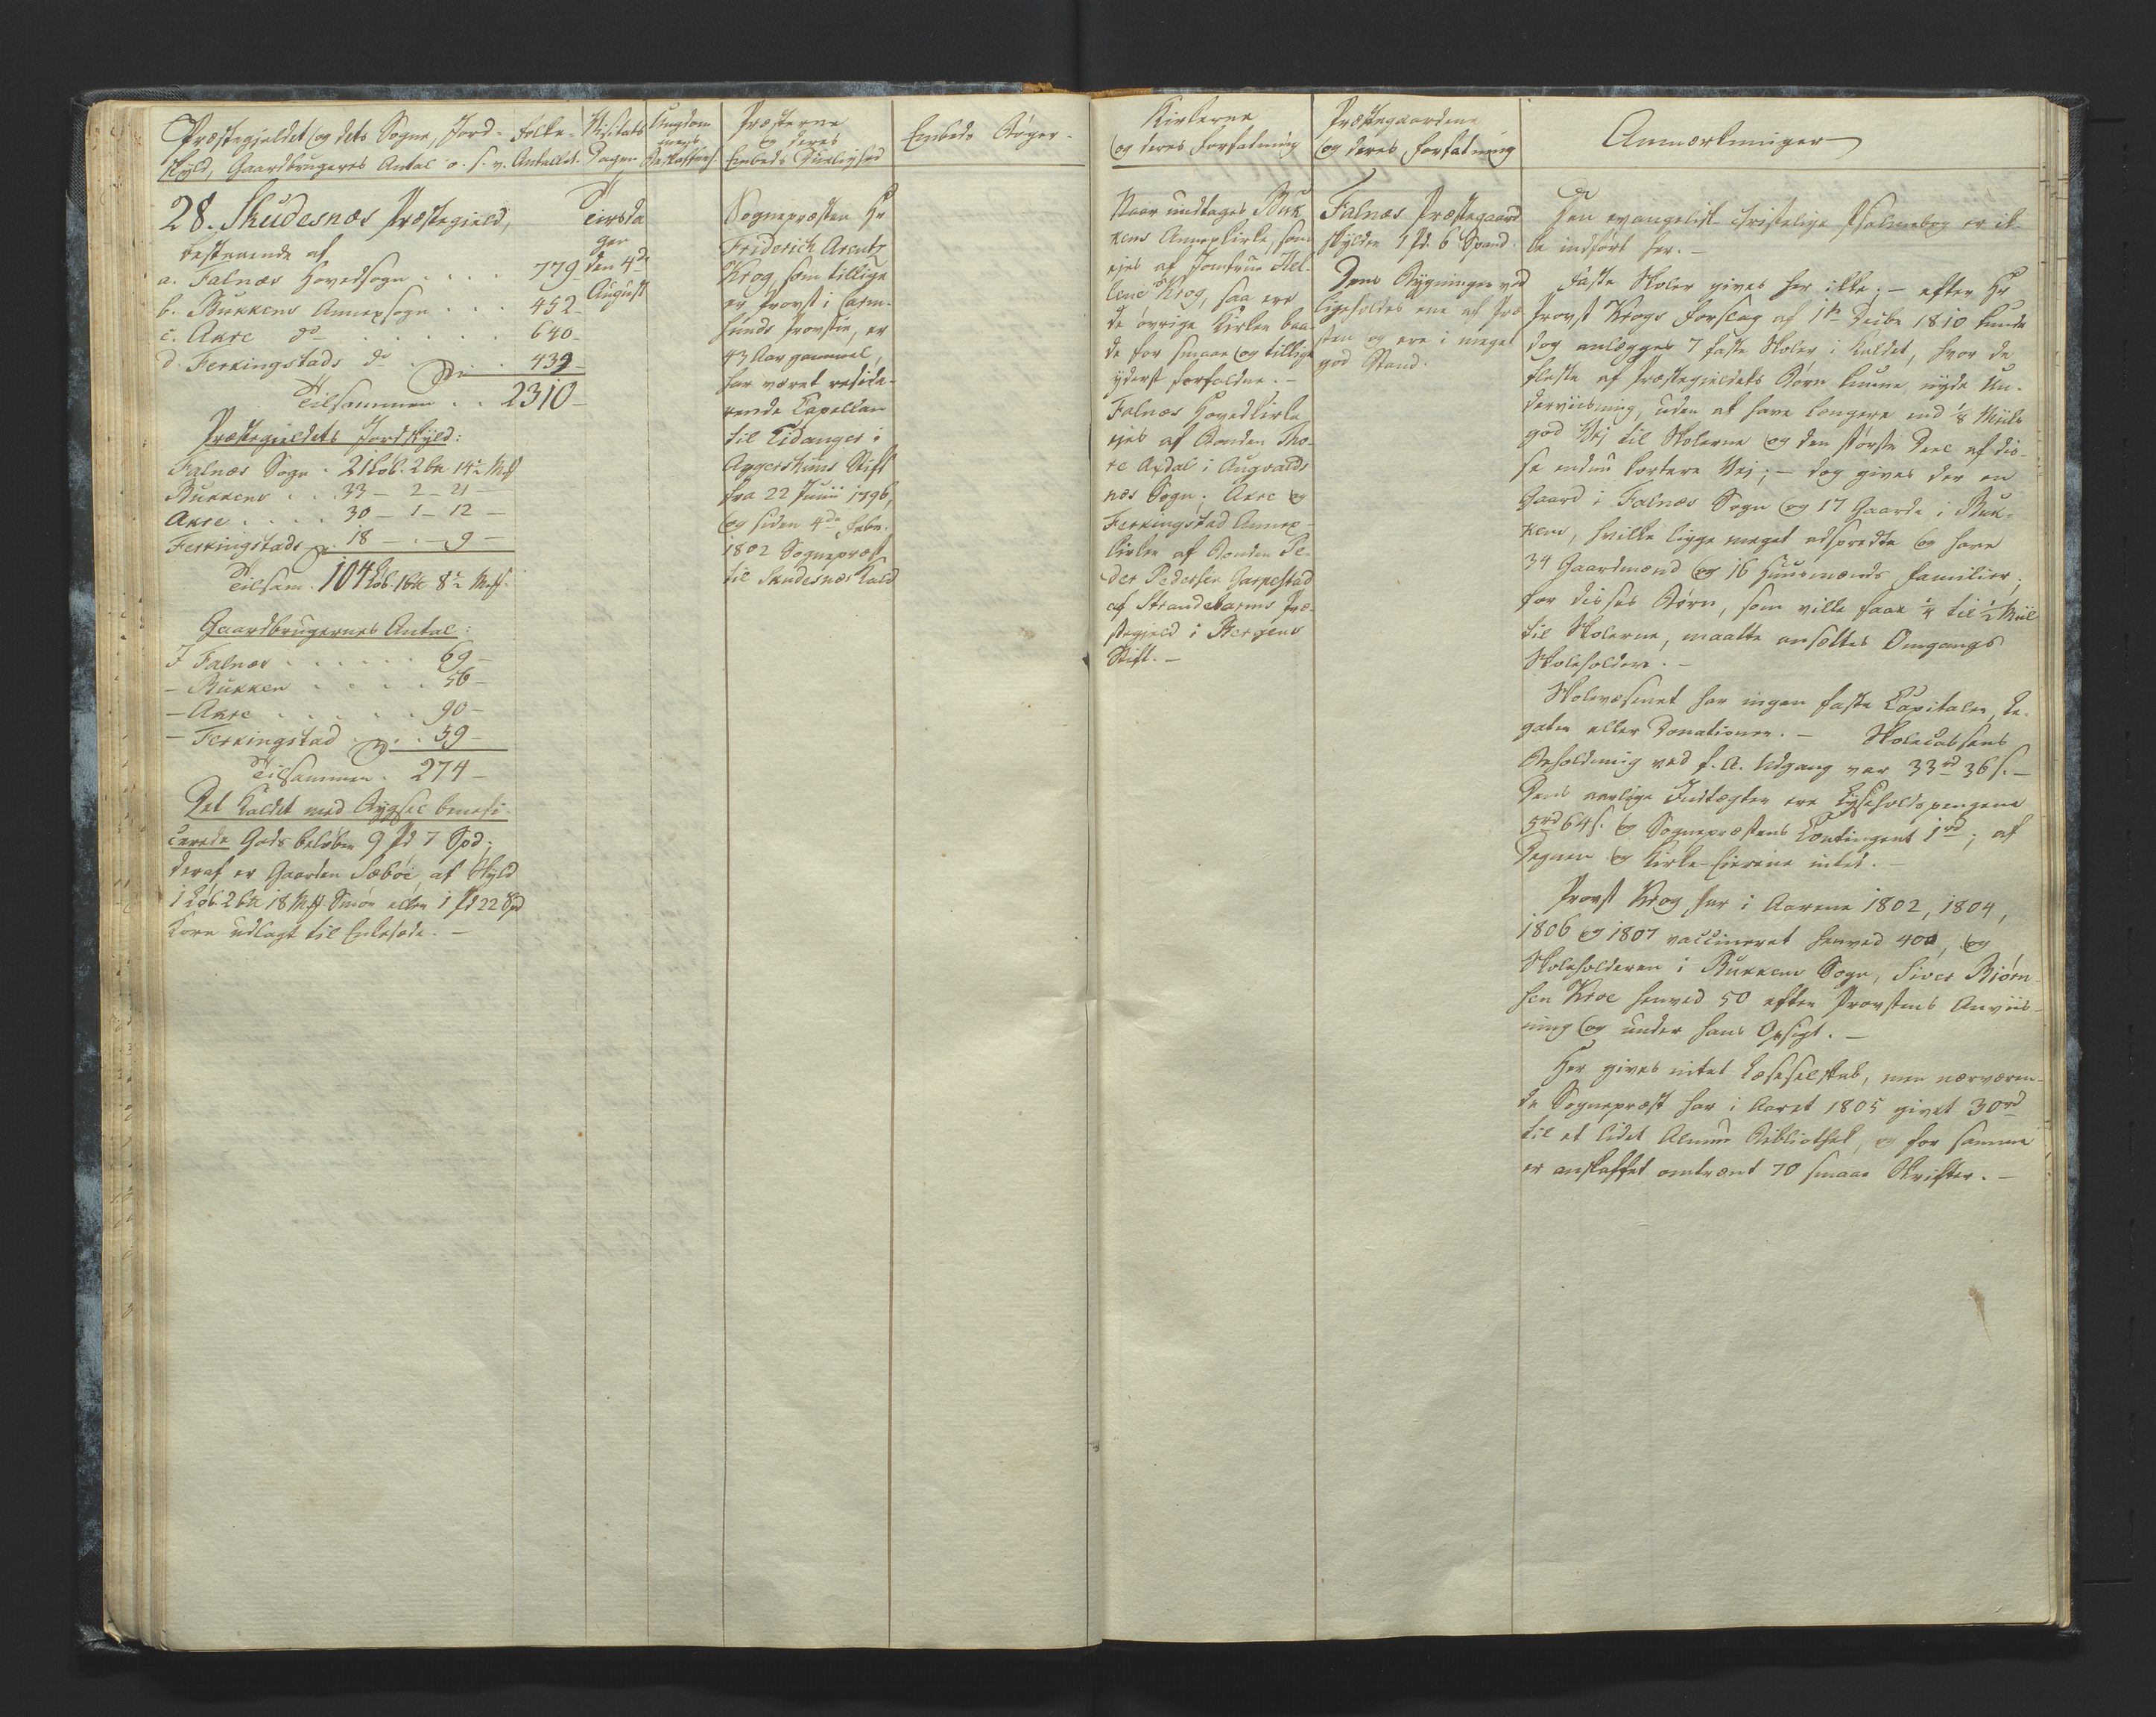 Præstegjeldet og dets Sogne, Jord-
skyld, Gaardbrugeres Antal o. s. v.
Folke-
Antallet.
Visitats
Dagen
Ungdom
mens
Beskaffenh.
Præsterne
og deres
Embeds Duelighed
Embeds Bøger.
28. Skudesnæs Præstegield,
bestaaende af
a. Falnæs Hovedsogn . . . . 779
b. Bukkens Annexsogn . . . 452
c. Akre do . . . . . . 640
d. Ferkingstads do . . . 439
Tilsammen . . 2310
Præstegieldets Jordskyld:
Falnæs Sogn . 21 Løb. 2 bn 14½ Mrk
Bukkens . . . 33 — 2 — 21 —
Akre . . . . 30 — 1 — 12 —
Ferkingstads . 18 — . — 9 —
Tilsam. 104 Løb. 1 bn 8½ Mrk.
Gaardbrugernes Antal:
I Falnæs . . . . . . 69 —
— Bukken . . . . . 56 —
— Akre . . . . . . 90 —
— Ferkingstad . . . 59 —
Tilsammen . 274 —
Det Kaldet med Bygsel benefi-
cerede Gods beløber 9 Pd 7 Spd;
deraf er Gaarden Sæbøe, af Skyld
1 Løb 2 bn 18 Mrk Smør eller 1 Pd 22 Spd
Korn udlagt til Enkesæde. —
Tirsda
gen
den 4de
August
Sognepræsten Hr
Friderich Arentz
Krog, som tillige
er Provst i Carm-
sunds Provstie, er
43 Aar gammel,
har været reside-
rende Capellan
til Eidanger i
Aggershuus Stift
fra 22 Junii 1796,
og siden 4de Febr.
1802 Sognepræst
til Skudesnæs Kald
Kirkerne
og deres Forfatning
Præstegaardene
og deres Forfatning
Anmærkninger
Naar undtages Buk
kens Annexkirke, som
ejes af Jomfrue Hel-
lene Krog, saa ere
de øvrige Kirker baa-
de for smaae og tillige
yderst forfaldne. —
Falnæs Hovedkirke
ejes af Bonden Tho-
re Axdal i Augvalds
næs Sogn; Akre og
Ferkingstad Annex-
kirker af Bonden Pe-
der Pedersen Garpestad
af Strandebarms Præ-
stegield i Bergens
Stift. —
Falnæs Præstegaard
skylder 1 Pd. 6 Spand.
Dens Bygninger ved
ligeholdes ene af Præ
sten og ere i meget
god Stand.
Den evangelisk christelige Psalmebog er ik-
ke indført her. —
Faste Skoler gives her ikke; — efter Hr
Provst Krogs Forslag af 1te Decbr 1810 kunde
dog anlægges 7 faste Skoler i Kaldet, hvor de
fleste af Præstegieldets Børn kunne nyde Un-
derviisning, uden at have længere end 1/8 Miils
god Vej til Skolerne og den største Deel af dis-
se endnu kortere Vej; — dog gives der en
Gaard i Falnæs Sogn og 17 Gaarde i Buk-
ken, hvilke ligge meget adspredte og have
34 Gaardmænd og 16 Huusmænds Familier;
for disses Børn, som ville faae ¼ til ½ Miil
til Skolerne, maatte ansættes Omgangs
Skoleholdere. —
Skolevæsenet har ingen faste Capitaler, Le-
gater eller Donationer. — Skolecassens
Beholdning ved f. A. Udgang var 33 rd 36 s. —
Dens aarlige Indtægter ere Lyseholdspengene
5 rd 64 s. og Sognepræstens Contingent 1 rd; af
Degnen og Kirke-Eierene intet. —
Provst Krog har i Aarene 1802, 1804,
1806 og 1807 vaccineret henved 400, og
Skoleholderen i Bukkens Sogn, Siver Biørn-
sen Kroe henved 50 efter Provstens Anviis-
ning og under hans Opsigt. —
Her gives intet Læseselskab, men nærværen-
de Sognepræst har i Aaret 1805 givet 30 rd
til et lidet Almue Bibliothek, og for samme
er anskaffet omtrent 70 smaae Skrifter. —